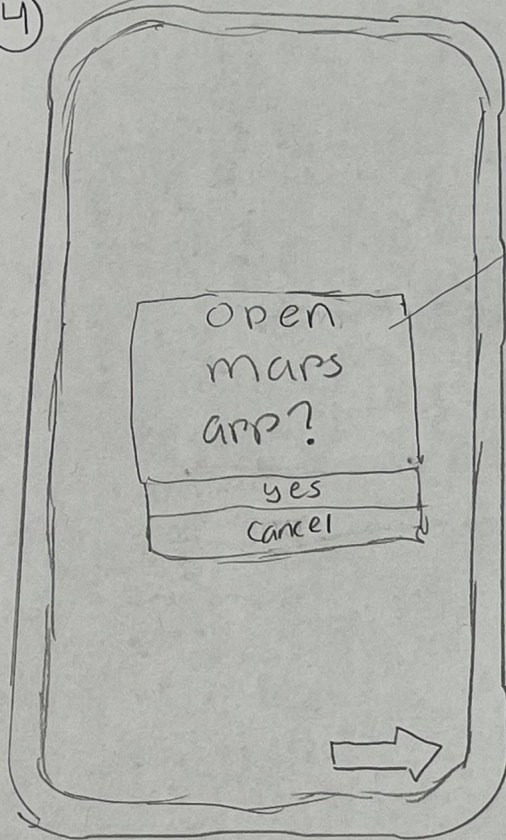 4
open
maps
app?
yes
cancel